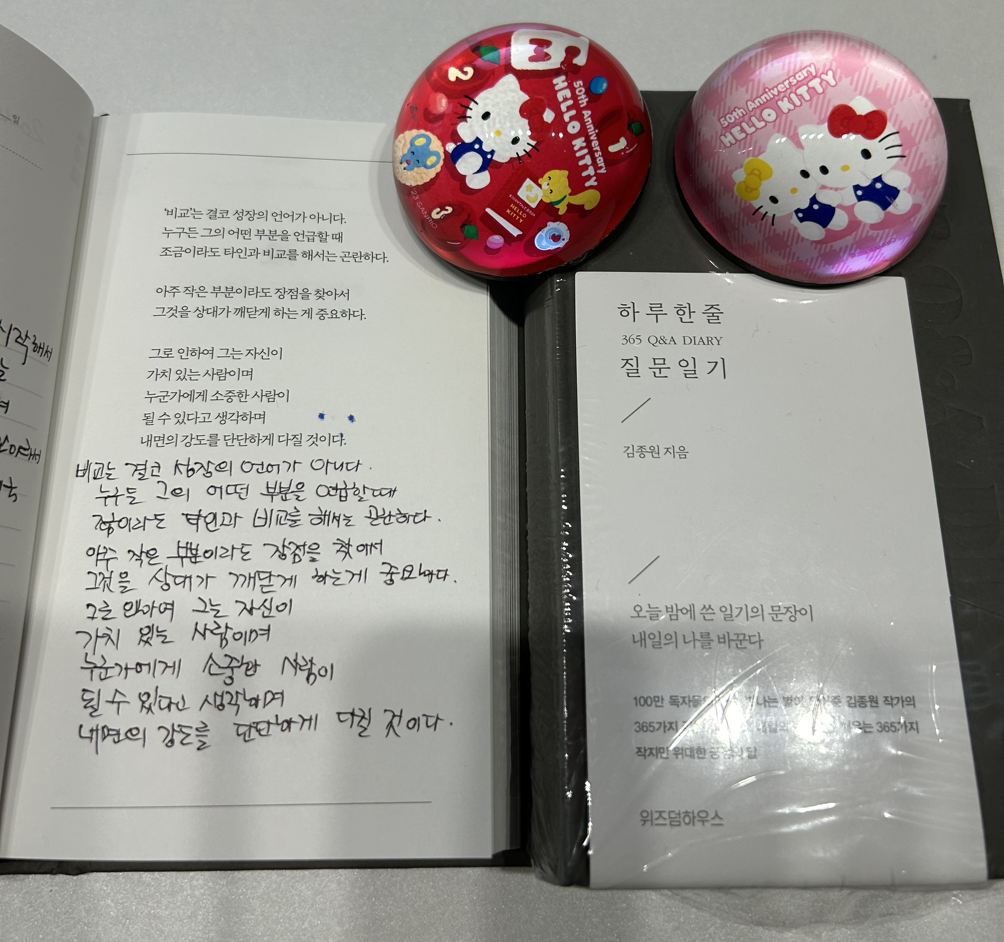 시작해서
'비교'는 결코 성장의 언어가 아니다.
누구든 그의 어떤 부분을 언급할 때
조금이라도 타인과 비교를 해서는 곤란하다.
아주 작은 부분이라도 장점을 찾아서
그것을 상대가 깨닫게 하는 게 중요하다.
그로 인하여 그는 자신이
가치 있는 사람이며
누군가에게 소중한 사람이
될 수 있다고 생각하며
내면의 강도를 단단하게 다질 것이다.
비교는 결코 성장의 언어가 아니다.
누구든 그의 어떤 부분을 언급할때
타인과 비교를 해서는 곤란하다.
아주 작은 부분이라도 장점을 찾아서
그것을 상대가 깨닫게 하는게 중요하다.
그로 인하여 그는 자신이
가치 있는 사람이며
누군가에게 소중한 사람이
될 수 있다고 생각하며
내면의 강도를 단단하게 다질 것이다.
2
1
3
50th Anniversary
HELLO KITTY
50th Anniversary
HELLO KITTY
하루 한 줄
365 Q&A DIARY
질문 일기
김종원 지음
오늘 밤에 쓴 일기의 문장이
내일의 나를 바꾼다
100만 김종원 작가의
365가지 365가지
작지만 위대한
위즈덤하우스